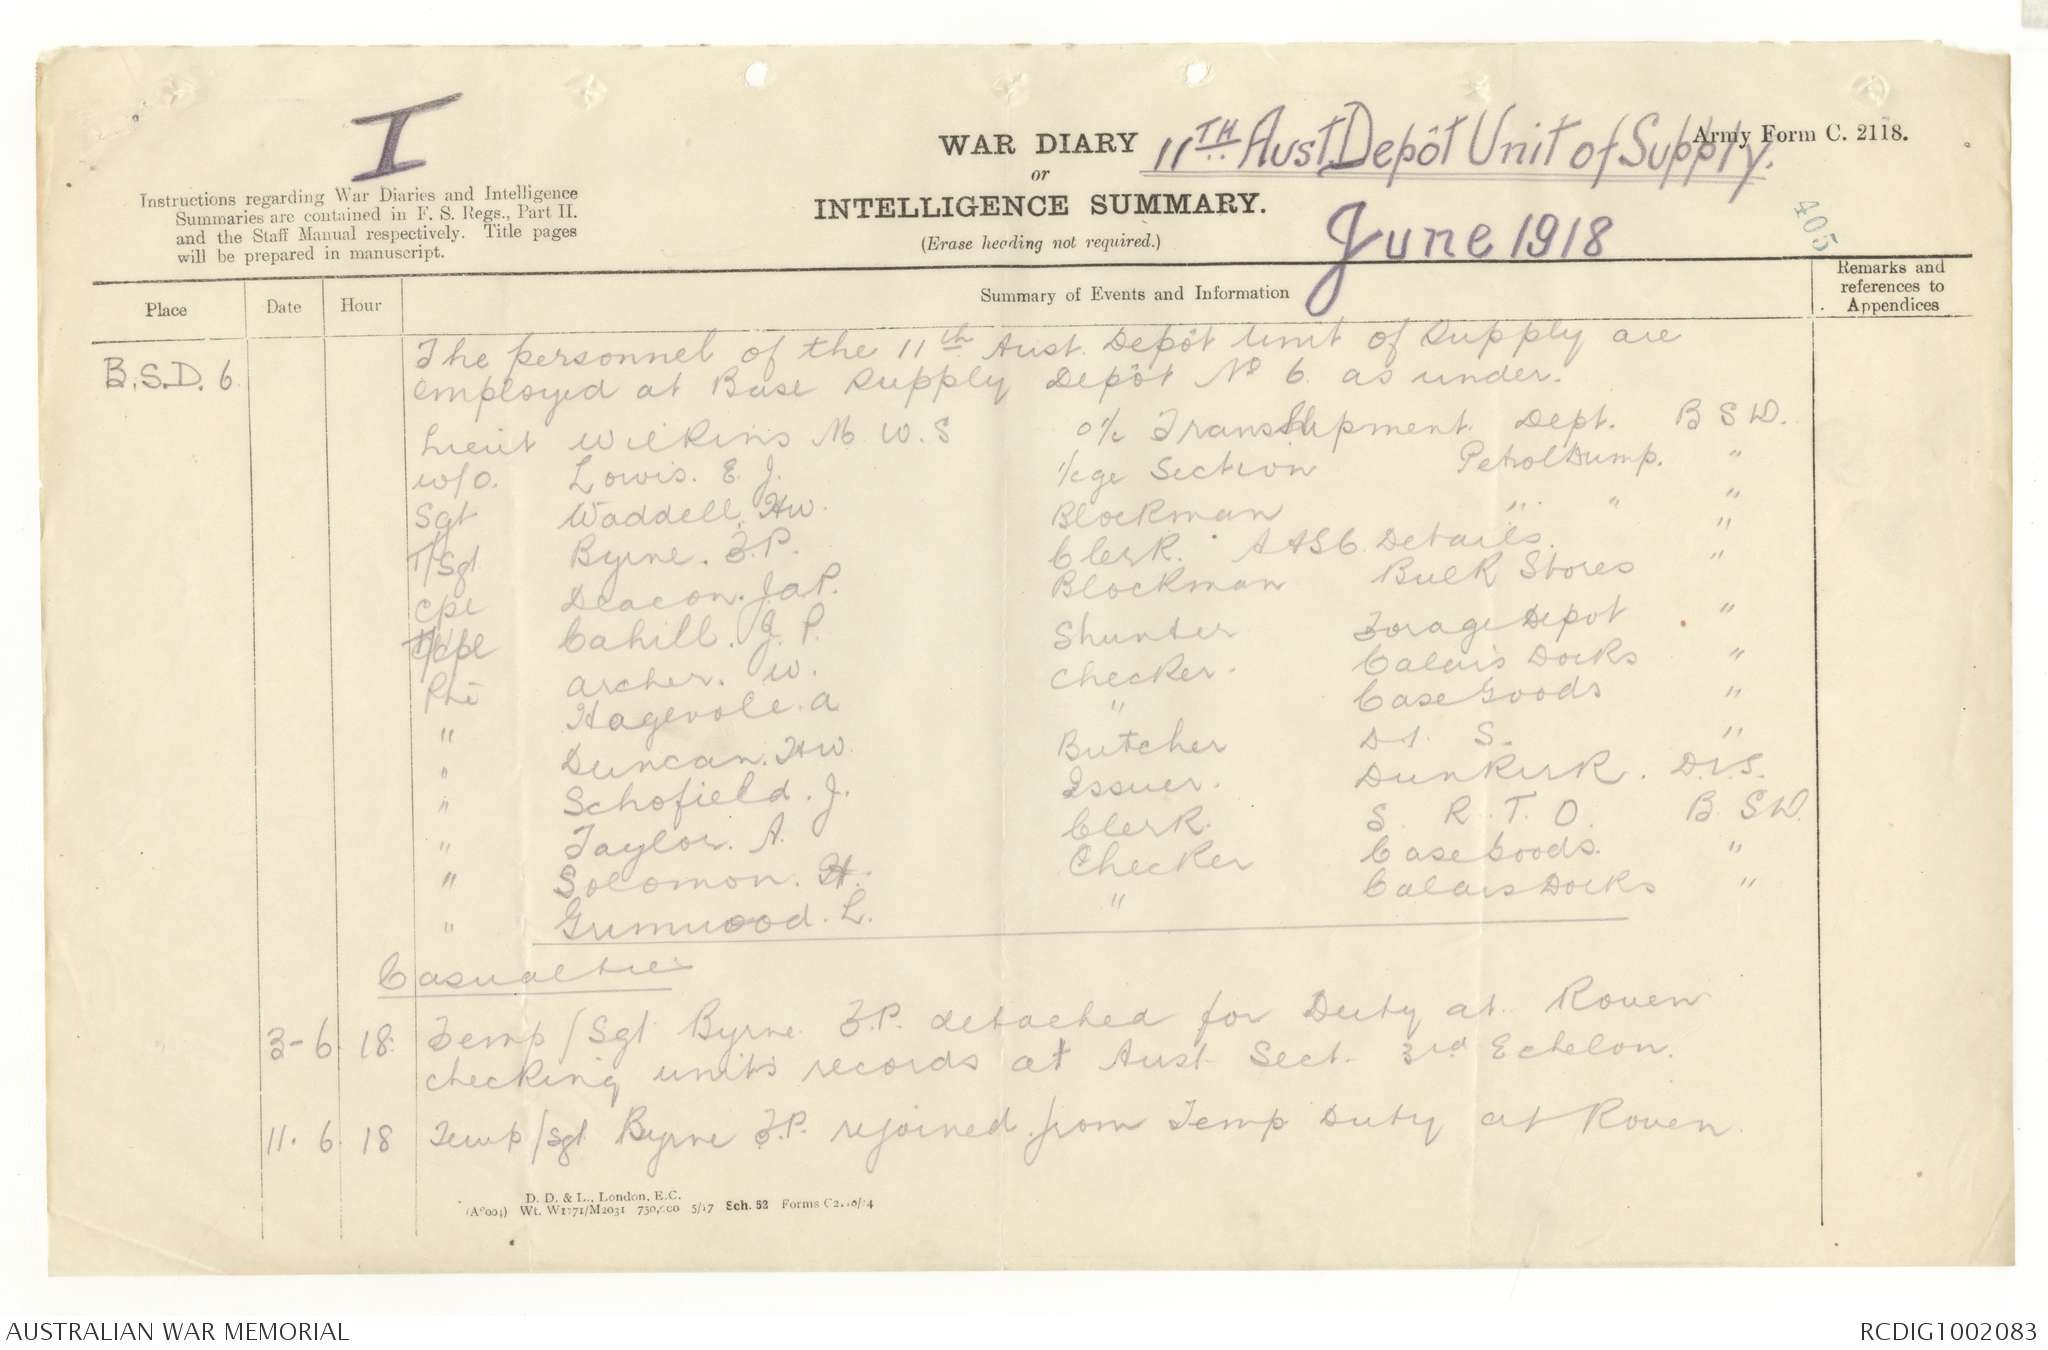 I
WAR DIARY
or
INTELLIGENCE SUMMARY.
(Erase heading not required.)
11TH Aust. Depôt Unit of Supply.
June 1918
Army Form C. 2118.
405
Instructions regarding War Diaries and Intelligence
Summaries are contained in F. S. Regs., Part II.
and the Staff Manual respectively. Title pages
will be prepared in manuscript.
Place Date Hour Summary of Events and Information Remarks and references to Appendices
B.S.D. 6. The personnel of the 11th Aust. Depôt Unit of Supply are
employed at Base Supply Depôt No 6. as under.
Lieut Wilkins M. W. S o/c Transhipment Dept. B S D.
w/o. Lowis. E. J. i/cge Section Petrol Dump. "
Sgt Waddell. HW. Blockman " " "
T/Sgt Byrne. F.P. Clerk. AASC. Details. "
Cpl Deacon. J.A.P. Blockman Bulk Stores "
T/Cpl Cahill. J. P. Shunter Forage Depot "
Pte Archer. W. Checker. Calais Docks "
" Hagevole. A " Case Goods "
" Duncan. HW. Butcher D.I. S. "
" Schofield. J. Issuer. Dunkirk. D.I.S.
" Taylor. A. Clerk. S. R. T. O. B. S D.
" Solomon. H. Checker Case Goods. "
" Grumwood. L. " Calais Docks "
Casualties
3-6 18. Temp/Sgt Byrne. F.P. detached for Duty at Rouen
checking units records at Aust. Sect. 3rd Echelon.
11. 6. 18 Temp/Sgt Byrne F.P. rejoined from Temp Duty at Rouen.
D. D. & L., London, E.C.
Wt. W1771/M2031 5/17 Sch. 52
AUSTRALIAN WAR MEMORIAL
RCDIG1002083